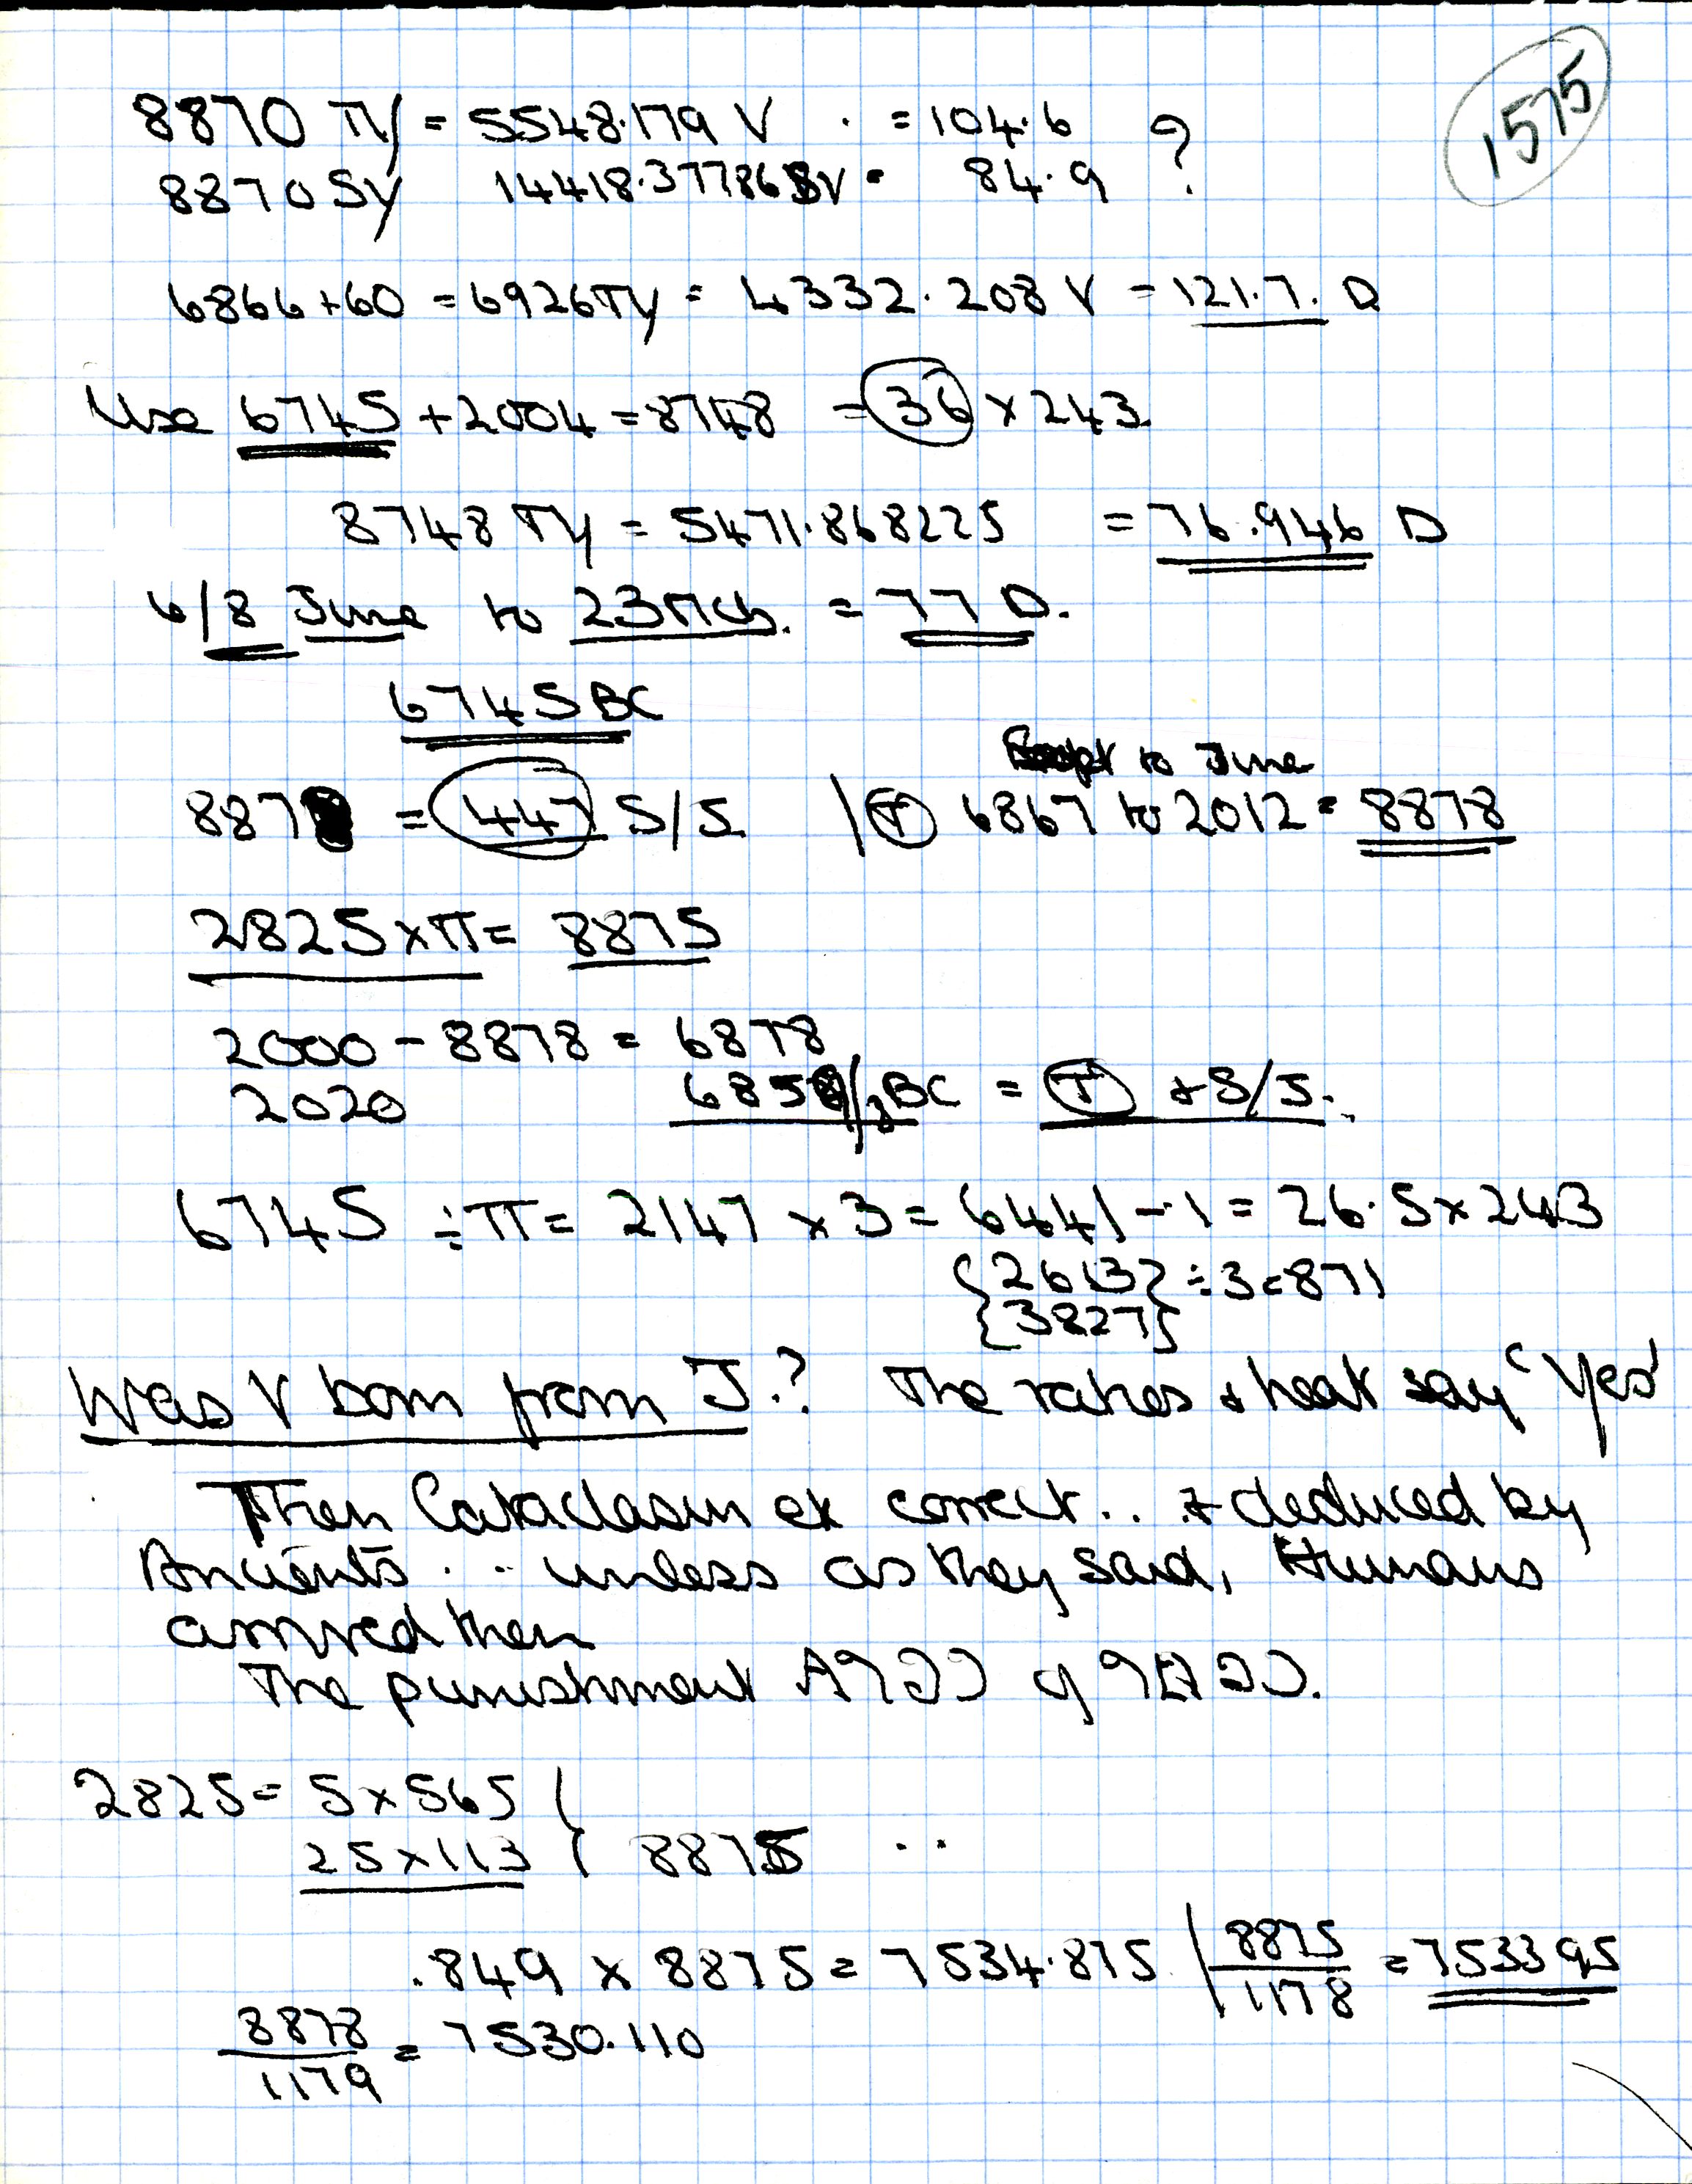 1575
8870 TY = 5548.179 V . = 104.6 ?
8870 SY 14418.377868 V = 84.9
6866 + 60 = 6926 TY = 4332.208 V = 121.7. D
Use 6745 + 2004 = 8748 = 36 x 243.
8748 TY = 5471.868225 = 76.946 D
6/8 June to 23 Mch. = 77 D.
6745 BC
to June
= 447 S/S. | T 6867 to 2012 = 8878
2825 x π = 8875
2000 - 8878 = 6878
2020 BC = T + S/S.
6745 ÷ π = 2147 x 3 = 6441 - 1 = 26.5 x 243
{2613} ÷ 3 = 871
{3827}
Was V born from J.? The rates + heat say 'Yes'
Then Cataclasm ex correct.. + deduced by
Ancients... unless as they said, Humans
arrived then
The punishment of
2825 = 5 x 565 (
25 x 113 ( 8875 ..
.849 x 8875 = 7534.875 | 8875/1178 = 753395
8878/1179 = 7530.110